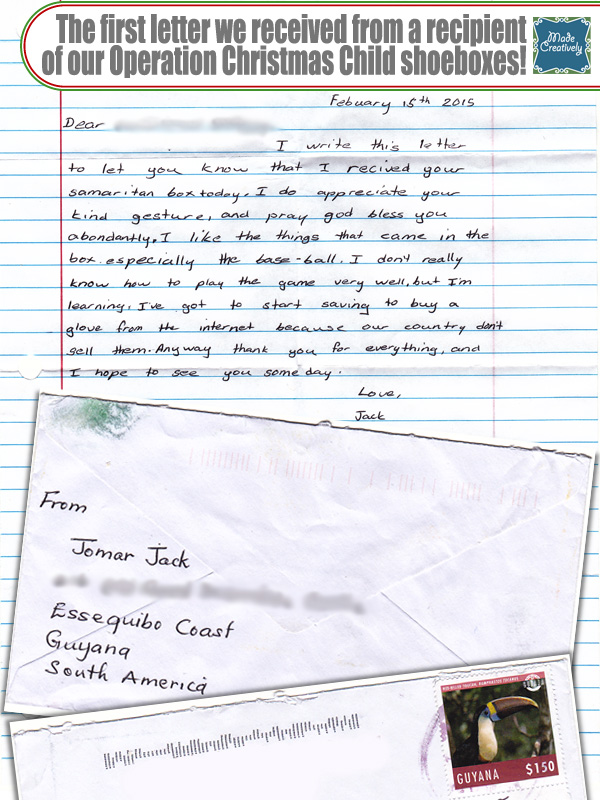 The first letter we received from a recipient
of our Operation Christmas Child shoeboxes!
Made
Creatively
Febuary 15th 2015
Dear
I write this letter
to let you know that I recived your
samaritan box today. I do appreciate your
kind gesture, and pray god bless you
abondantly. I like the things that came in the
box. especially the base-ball. I don't really
know how to play the game very well, but I'm
learning. I've got to start saving to buy a
glove from the internet because our country don't
sell them. Anyway thank you for everything, and
I hope to see you some day.
Love,
Jack
From
Jomar Jack
Essequibo Coast
Guyana
South America
GUYANA $150